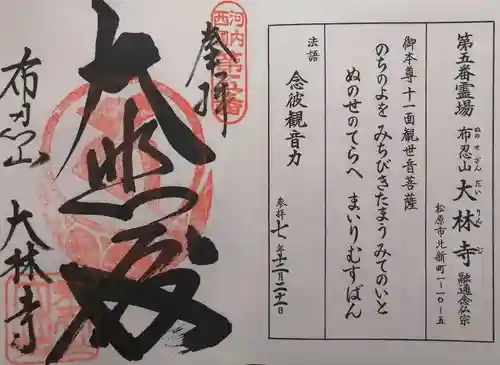 第五番霊場 布忍山 大林寺 融通念仏宗
ぬのせざん だいりんじ
松原市北新町一-一〇-五
御本尊十一面観世音菩薩
のちのよを みちびきたまう みてのいと
ぬのせのてらへ まいりむすばん
法語
念彼觀音力
参拝 七年十二月二十一日
河内
西国
第五番
奉拝
大悲殿
布忍山
大林寺